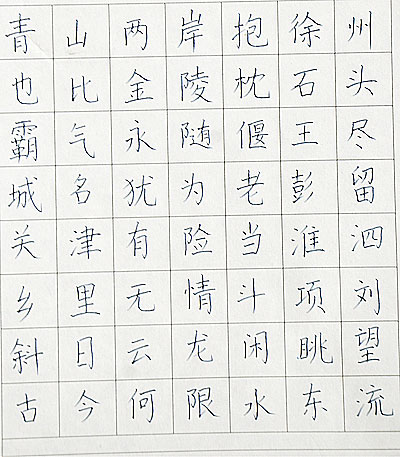 青山两岸抱徐州
也比金陵枕石头
霸气永随偃王尽
城名犹为老彭留
关津有险当淮泗
乡里无情斗项刘
斜日云龙闲眺望
古今何限水东流